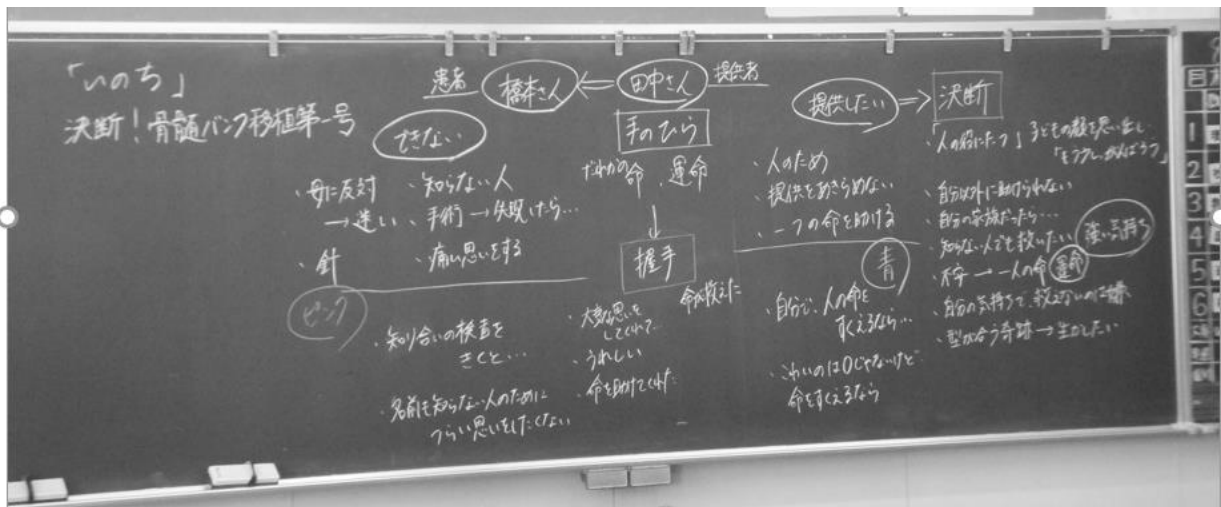 「いのち」
決断！骨髄バンク移植第一号
患者 橋本さん ⇐ 田中さん 提供者
できない
・母に反対
→迷い
・針
・知らない人
・手術→失敗したら…
・痛い思いをする
ピンク
・知り合いの検査を
きくと…
・名前も知らない人のために
つらい思いをしたくない
手のひら
だれかの命、運命
↓
握手
命が救えた
・大変な思いを
してくれて…
・うれしい
・命を助けてくれた
提供したい ⇒ 決断
・人のため
・提供をあきらめない
・一つの命を助ける
青
・自分で、人の命を
すくえるなら…
・こわいのは0じゃないけど
命をすくえるなら
「人の役にたつ」子どもの顔を思い出し
「もう少しがんばろう」
・自分以外に助けられない
・自分の家族だったら…
・知らない人でも救いたい 強い気持ち
・不安→一人の命 運命
・自分の気持ちで、救えないのは嫌
・型が合う奇跡→生かしたい
目
1
2
3
4
5
6